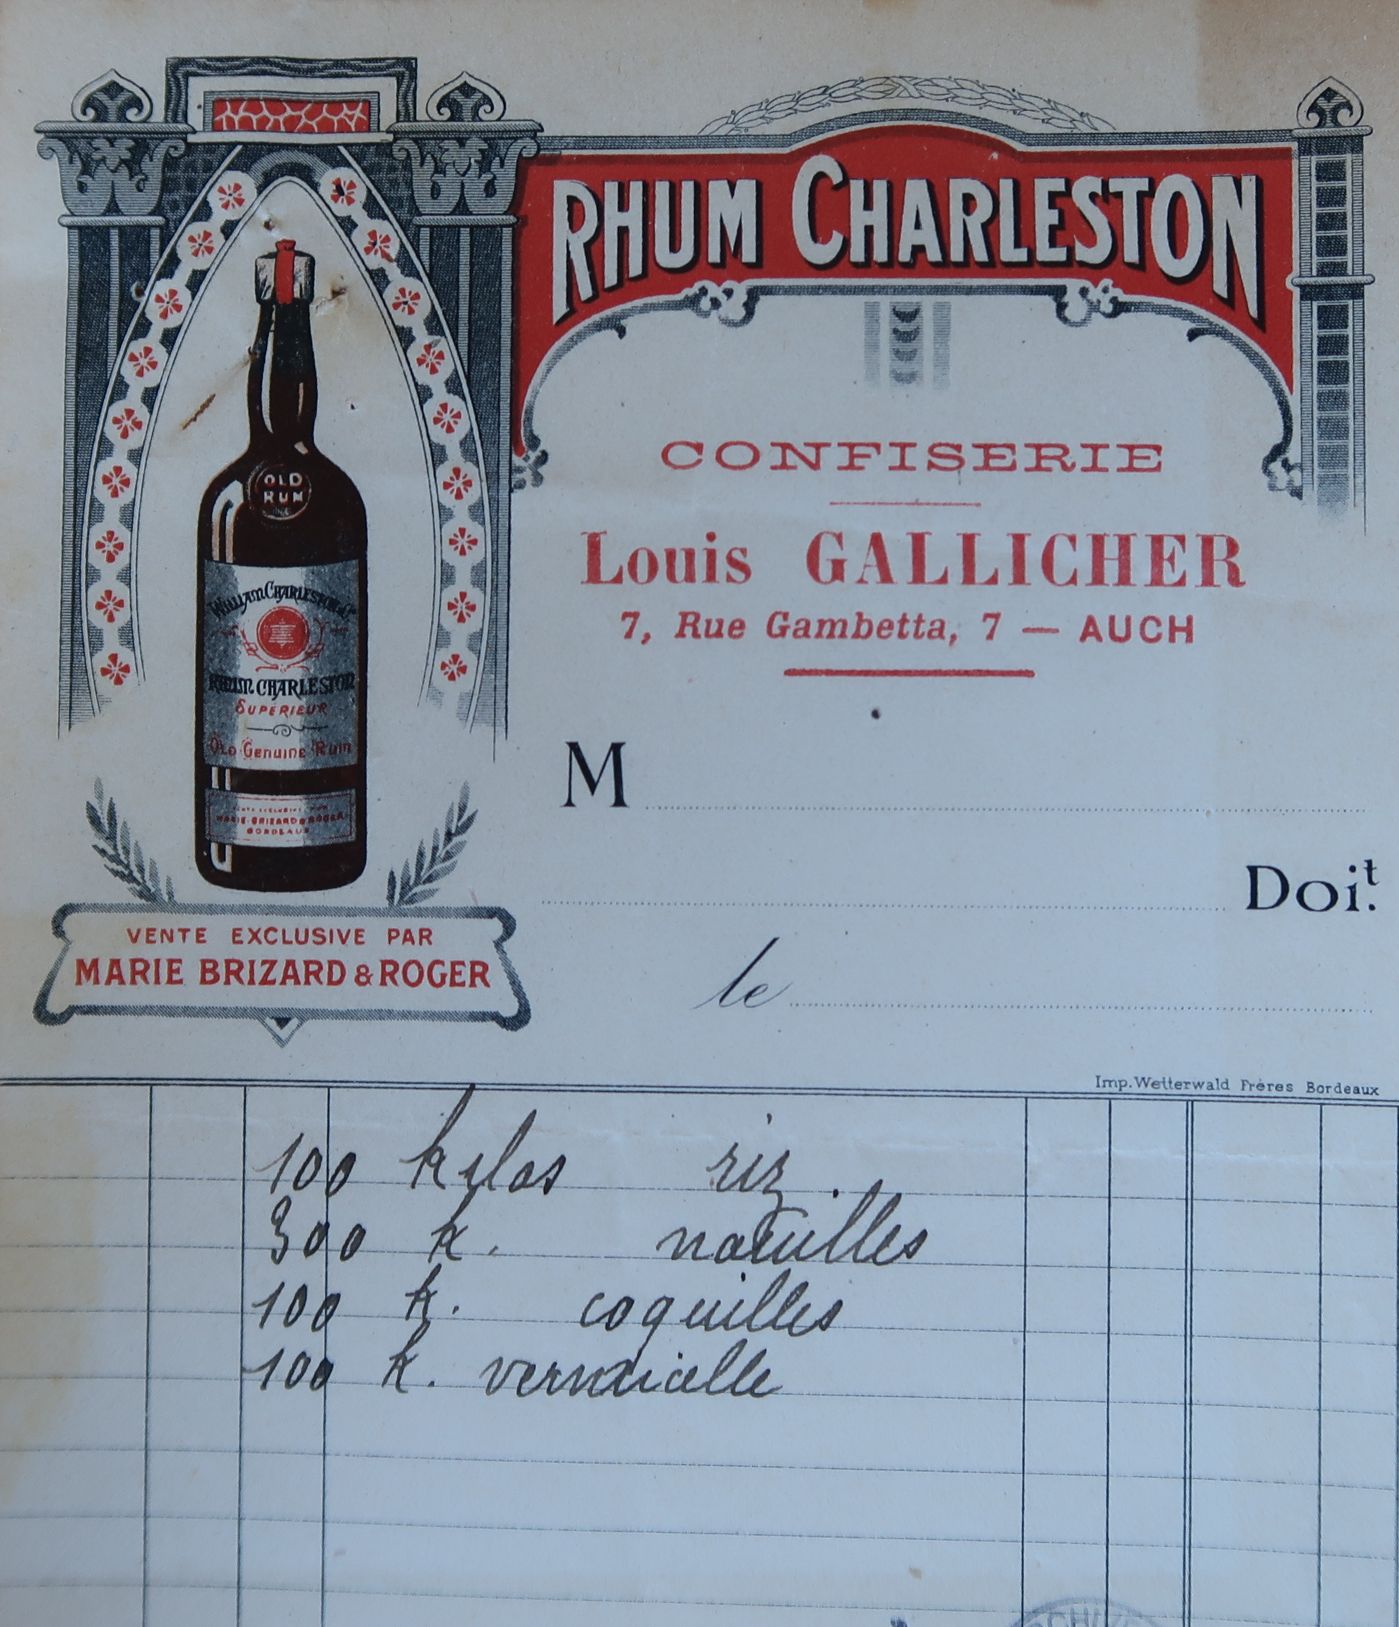 RHUM CHARLESTON
OLD
RUM
WILLIAM CHARLESTON & Co
RHUM CHARLESTON
SUPÉRIEUR
Old Genuine Rum
MARIE BRIZARD & ROGER
BORDEAUX
VENTE EXCLUSIVE PAR
MARIE BRIZARD & ROGER
CONFISERIE
Louis GALLICHER
7, Rue Gambetta, 7 — AUCH
M
Doit.
le
Imp. Wetterwald Frères Bordeaux
100 kilos riz.
300 k. nouilles
100 k. coquilles
100 k. vermicelle